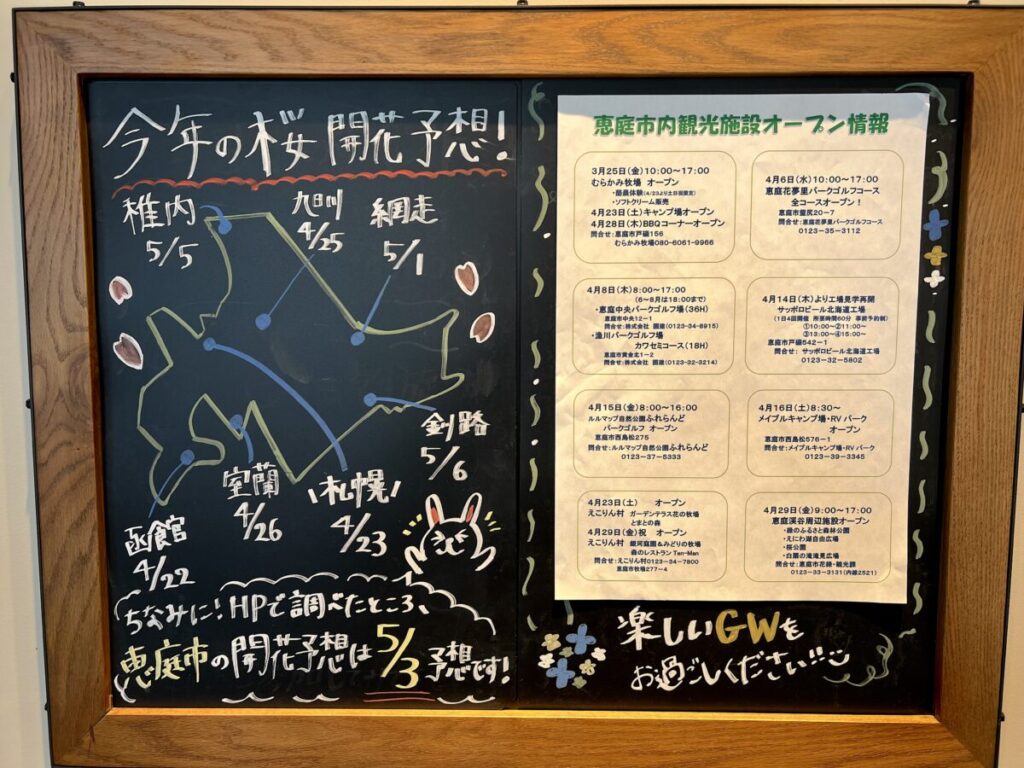 今年の桜開花予想!
稚内
5/5
旭川
4/25
網走
5/1
釧路
5/6
室蘭
4/26
札幌
4/23
函館
4/22
ちなみに!HPで調べたところ、
恵庭市の開花予想は5/3予想です!
恵庭市内観光施設オープン情報
3月25日(金)10:00~17:00
むらかみ牧場 オープン
・酪農体験(4/23より土日祝限定)
・ソフトクリーム販売
4月23日(土)キャンプ場オープン
4月28日(木)BBQコーナーオープン
恵庭市戸磯156
むらかみ牧場080-6061-9966
4月6日(水)10:00~17:00
恵庭花夢里パークゴルフコース
全コースオープン!
恵庭市盤尻20-7
問合せ:恵庭花夢里パークゴルフコース
0123-35-3112
4月8日(木)8:00~17:00
(6~8月は18:00まで)
・恵庭中央パークゴルフ場(36H)
恵庭市中央12-1
問合せ:株式会社 園建(0123-34-8915)
・漁川パークゴルフ場
カワセミコース(18H)
恵庭市黄金北1-2
問合せ:株式会社 園建(0123-32-3214)
4月14日(木)より工場見学再開
サッポロビール北海道工場
(1日4回開催 所要時間60分 事前予約制)
①10:00~②11:00~
③13:00~④15:00~
恵庭市戸磯542-1
問合せ: サッポロビール北海道工場
0123-32-5802
4月15日(金)8:00~16:00
ルルマップ自然公園ふれらんど
パークゴルフ オープン
恵庭市西島松275
問合せ:ルルマップ自然公園ふれらんど
0123-37-5333
4月16日(土)8:30~
メイプルキャンプ場・RVパーク
オープン
恵庭市西島松576-1
問合せ:メイプルキャンプ場・RVパーク
0123-39-3345
4月23日(土) オープン
えこりん村 ガーデンテラス花の牧場
とまとの森
4月29日(金)祝 オープン
えこりん村 銀河庭園&みどりの牧場
森のレストラン Ten-Man
問合せ:えこりん村0123-34-7800
恵庭市牧場277-4
4月29日(金)9:00~17:00
恵庭渓谷周辺施設オープン
・緑のふるさと森林公園
・えにわ湖自由広場
・桜公園
・白扇の滝滝見広場
問合せ:恵庭市花緑・観光課
0123-33-3131(内線2521)
楽しいGWを
お過ごしください!!